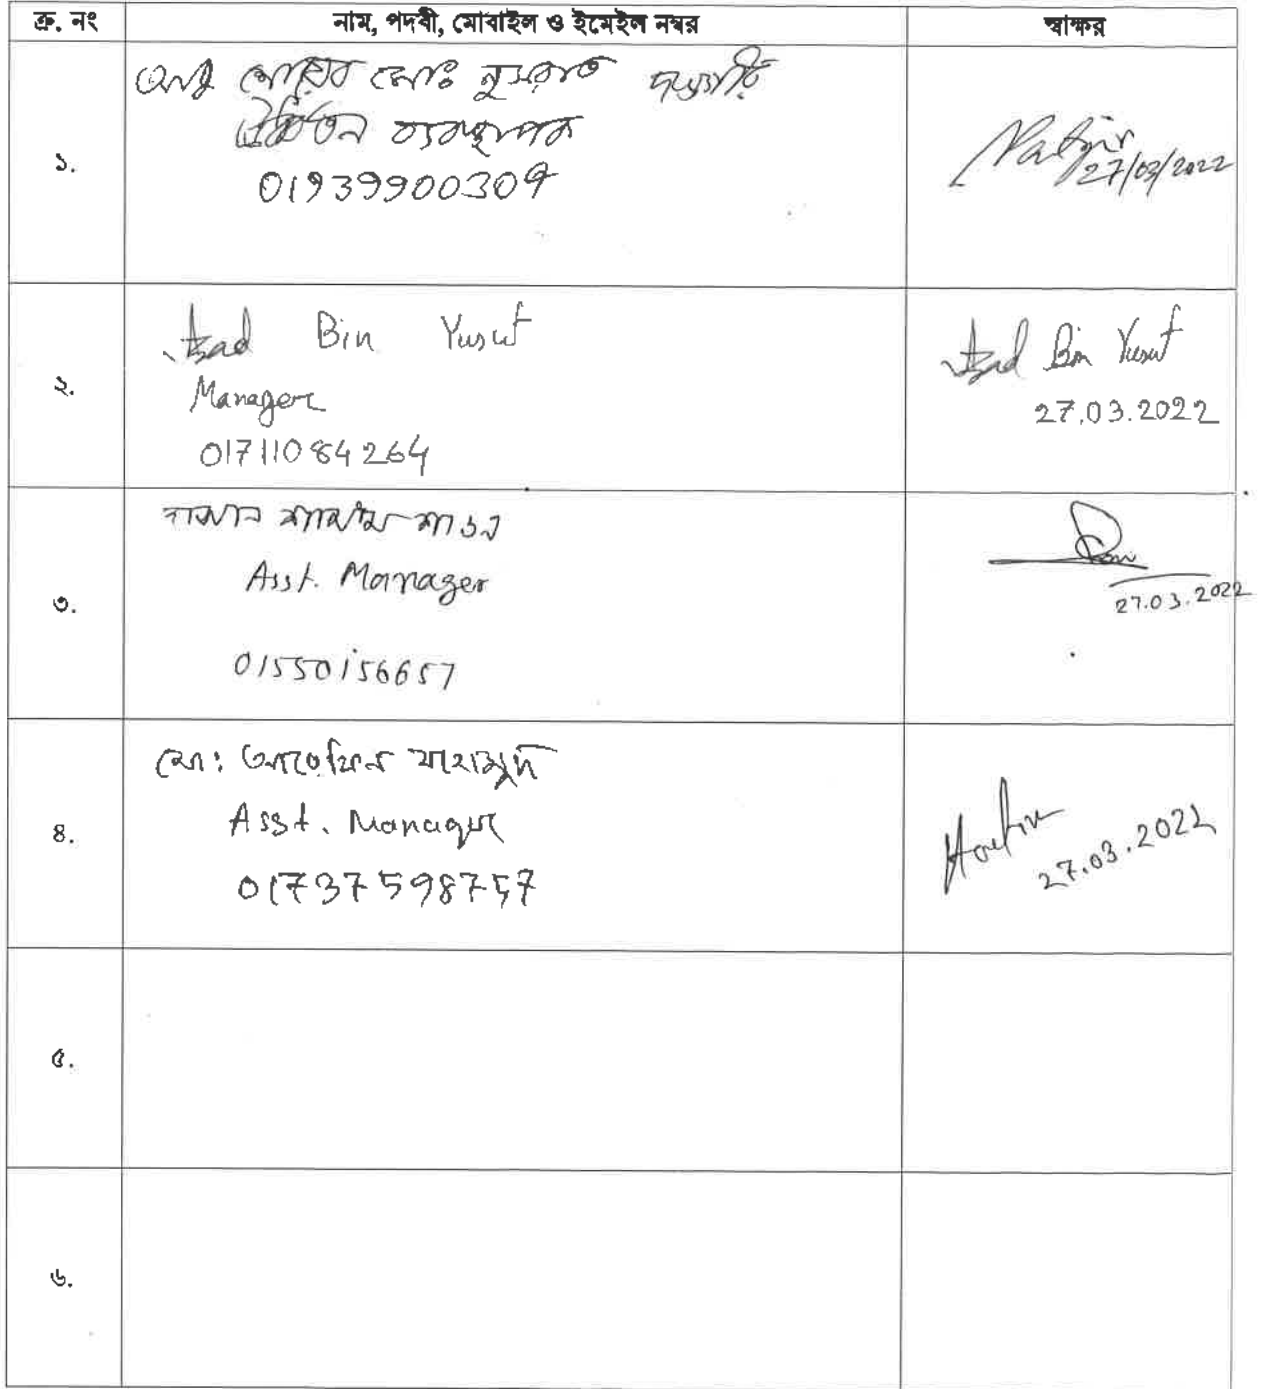 ক্র. নং নাম, পদবী, মোবাইল ও ইমেইল নম্বর স্বাক্ষর
১.
আবু মোঃ নুসরাত
ব্যবস্থাপক
01939900309
27/03/2022
২.
Azad Bin Yusuf
Manager
01711084264
Azad Bin Yusuf
27.03.2022
৩.
Asst. Manager
01550156657
27.03.2022
৪.
মো: আরেফিন মাহমুদ
Asst. Manager
01737598757
27.03.2022
৫.
৬.